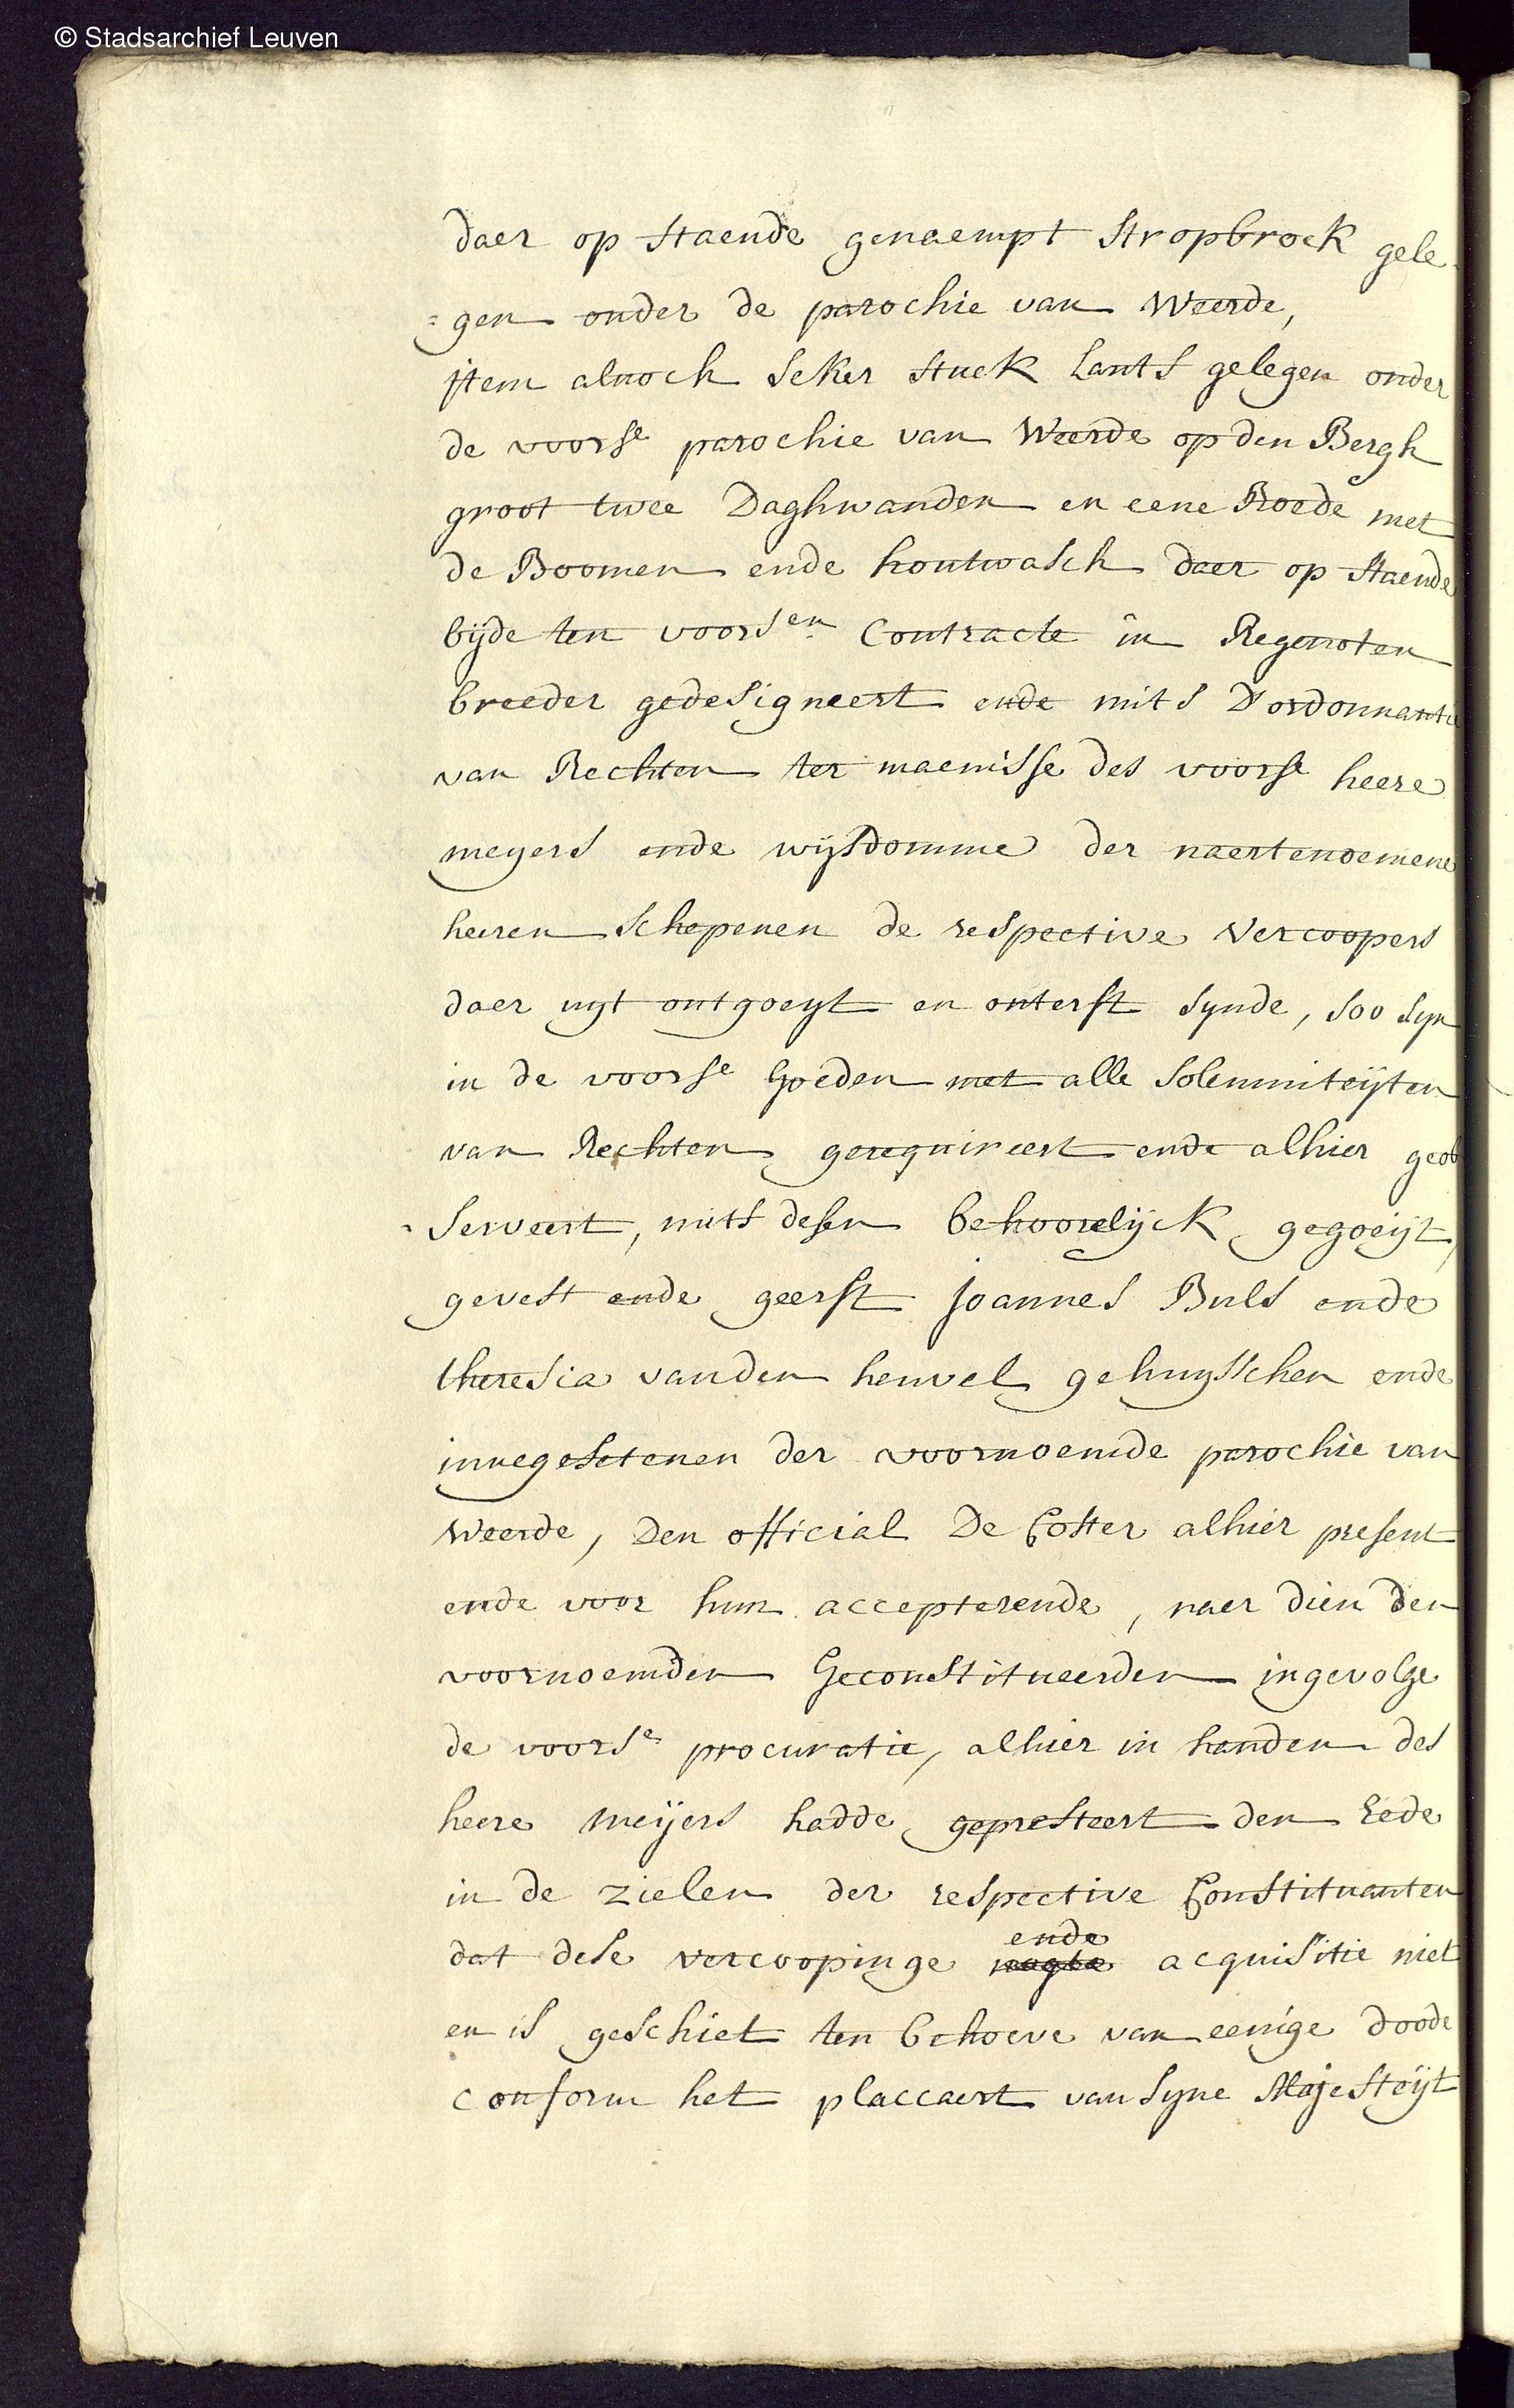 © Stadsarchief Leuven
daer op staende genaempt Stropbroek gele-
=gen onder de parochie van Weerde,
jtem alnoch seker stuck Lants gelegen onder
de voorse parochie van Weerde op den Bergh
groot twee Daghwanden en eene Roede met
de Boomen ende houtwasch daer op staende
bijde ten voorsen Contracte in Regenoten
breeder gedesigneert ende mits D'ordonnantie
van Rechten ter maenisse des voorse heere
meyers ende wijsdomme der naertenoemene
heeren schepenen de respective vercoopers
daer uyt ontgoeyt en onterft synde, soo syn
in de voorse Goeden met alle solemniteijten
van Rechten gerequireert ende alhier geob
serveert, mits desen behoorelijck gegoeijt,
gevest ende geerft joannes Buls ende
theresia vanden heuvel gehuysschen ende
innegesetenen der voornoemde parochie van
Weerde, Den official De Coster alhier present
ende voor hun accepterende, naer dien den
voornoemden Geconstitueerden ingevolge
de voorse procuratie, alhier in handen des
heere meijers hadde gepresteert den Eede
in de zielen der respective Constituanten
dat dese vercoopinge ende acquisitie niet
en is geschiet ten behoeve van eenige doode
conform het placcaert van syne Majesteijt